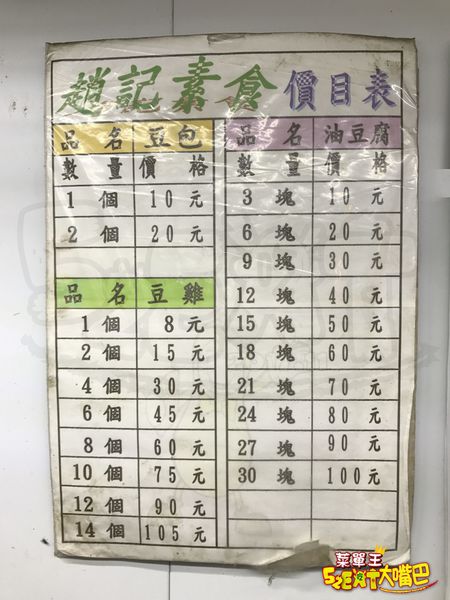 趙記素食 價目表
品名 豆包
數量 價格
1個 10元
2個 20元
品名 豆雞
1個 8元
2個 15元
4個 30元
6個 45元
8個 60元
10個 75元
12個 90元
14個 105元
品名 油豆腐
數量 價格
3塊 10元
6塊 20元
9塊 30元
12塊 40元
15塊 50元
18塊 60元
21塊 70元
24塊 80元
27塊 90元
30塊 100元
菜單王
528EAT大嘴巴